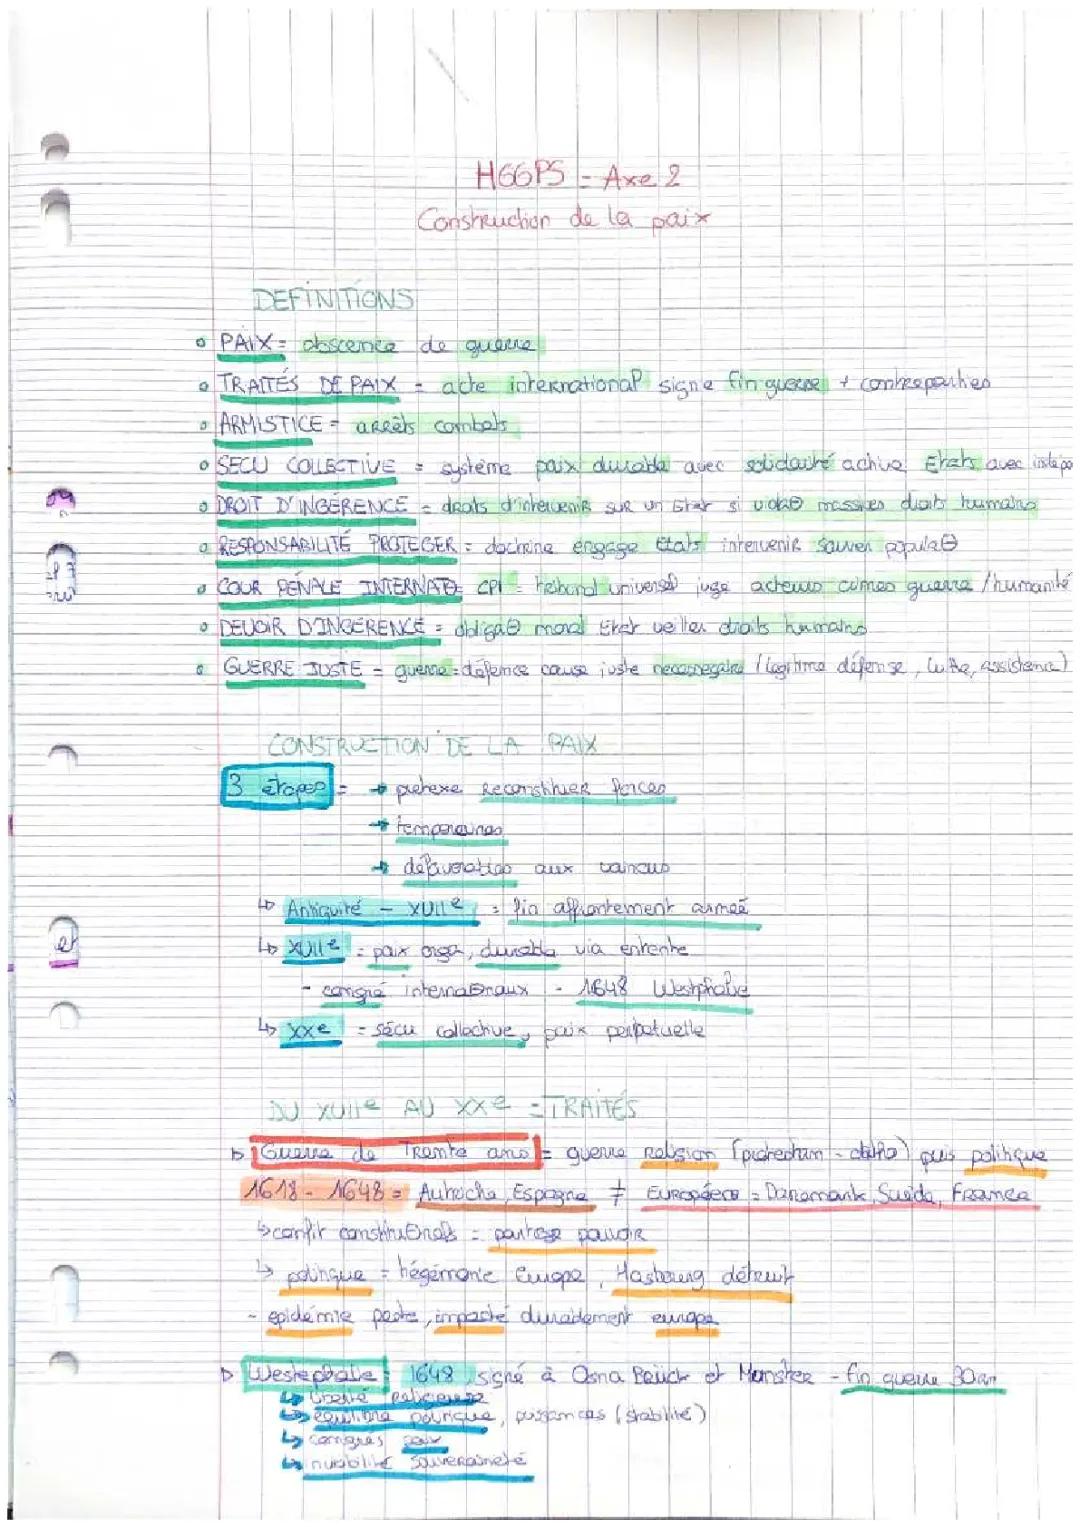 HGGPS - Axe 2
Construction de la paix
DEFINITIONS
PAIX = abscence de guerre
TRAITÉS DE PAIX = acte international signe fin guerre + contreparties
ARMISTICE = arrêts combats
SECU COLLECTIVE = système paix durable avec solidarité active Etats avec
DROIT D'INGÉRENCE = droits d'intervenir sur un Etat si massives droits humains
RESPONSABILITÉ PROTEGER = doctrine engage Etats intervenir sauver
COUR PÉNALE CPI = tribunal universel juge acteurs crimes guerre / humanité
DEVOIR D'INGÉRENCE = moral Etat veiller droits humains
GUERRE JUSTE = guerre = défence cause juste (légitime défense, lutte, assistance)
CONSTRUCTION DE LA PAIX
3 étapes = → reconstituer forces
→ temporaires
→ aux vaincus
↳ Antiquité - XVIIe = fin affrontement armée
↳ XVIIe = paix orga, durable via entente
- congré - 1648 Westphalie
↳ XXe = sécu collective, paix perpetuelle
DU XVIIe AU XXe = TRAITÉS
Guerre de Trente ans = guerre religion puis politique
1618 - 1648 = Autriche, Espagne ≠ Européens = Danemark, Suède, France
↳ = partage pouvoir
↳ politique = hégémonie Europe, détruit
- epidémie peste, impacté durablement europe
Westephalie = 1648 signé à Osna Brück et Munster - fin guerre 30an
↳ liberté religieuse
↳ équilibre politique, puissances (stabilité)
↳ congrés paix
↳ souveraineté
et